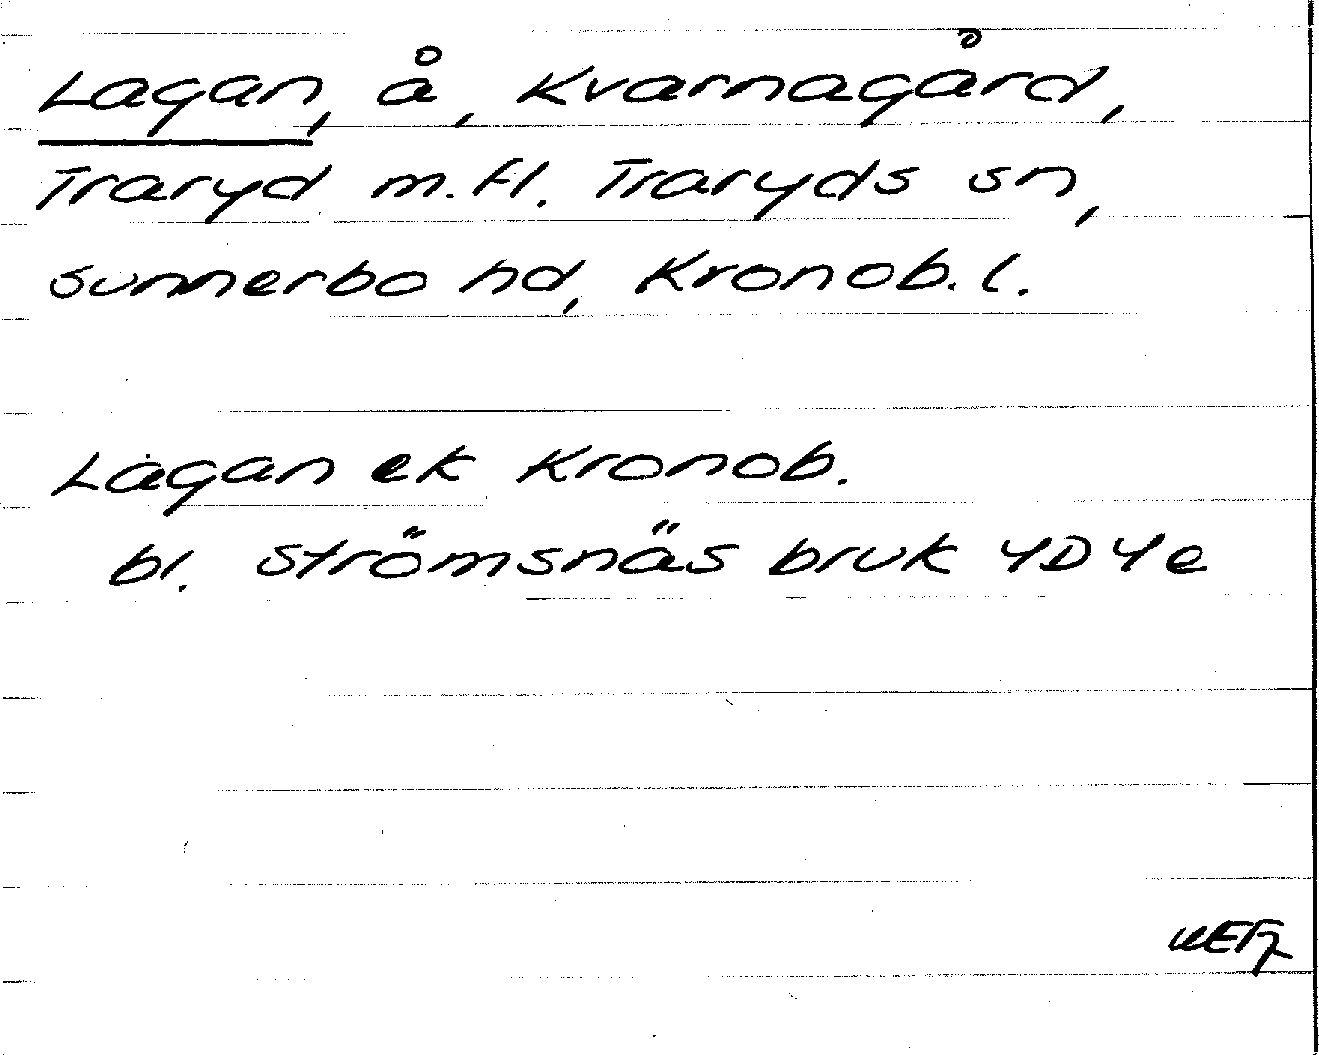 Lagan, å, Kvarnagård,
Traryd m.fl. Traryds sn,
Sunnerbo hd, Kronob.l.
Lagan ek Kronob.
bl. Strömsnäs bruk 4D4e